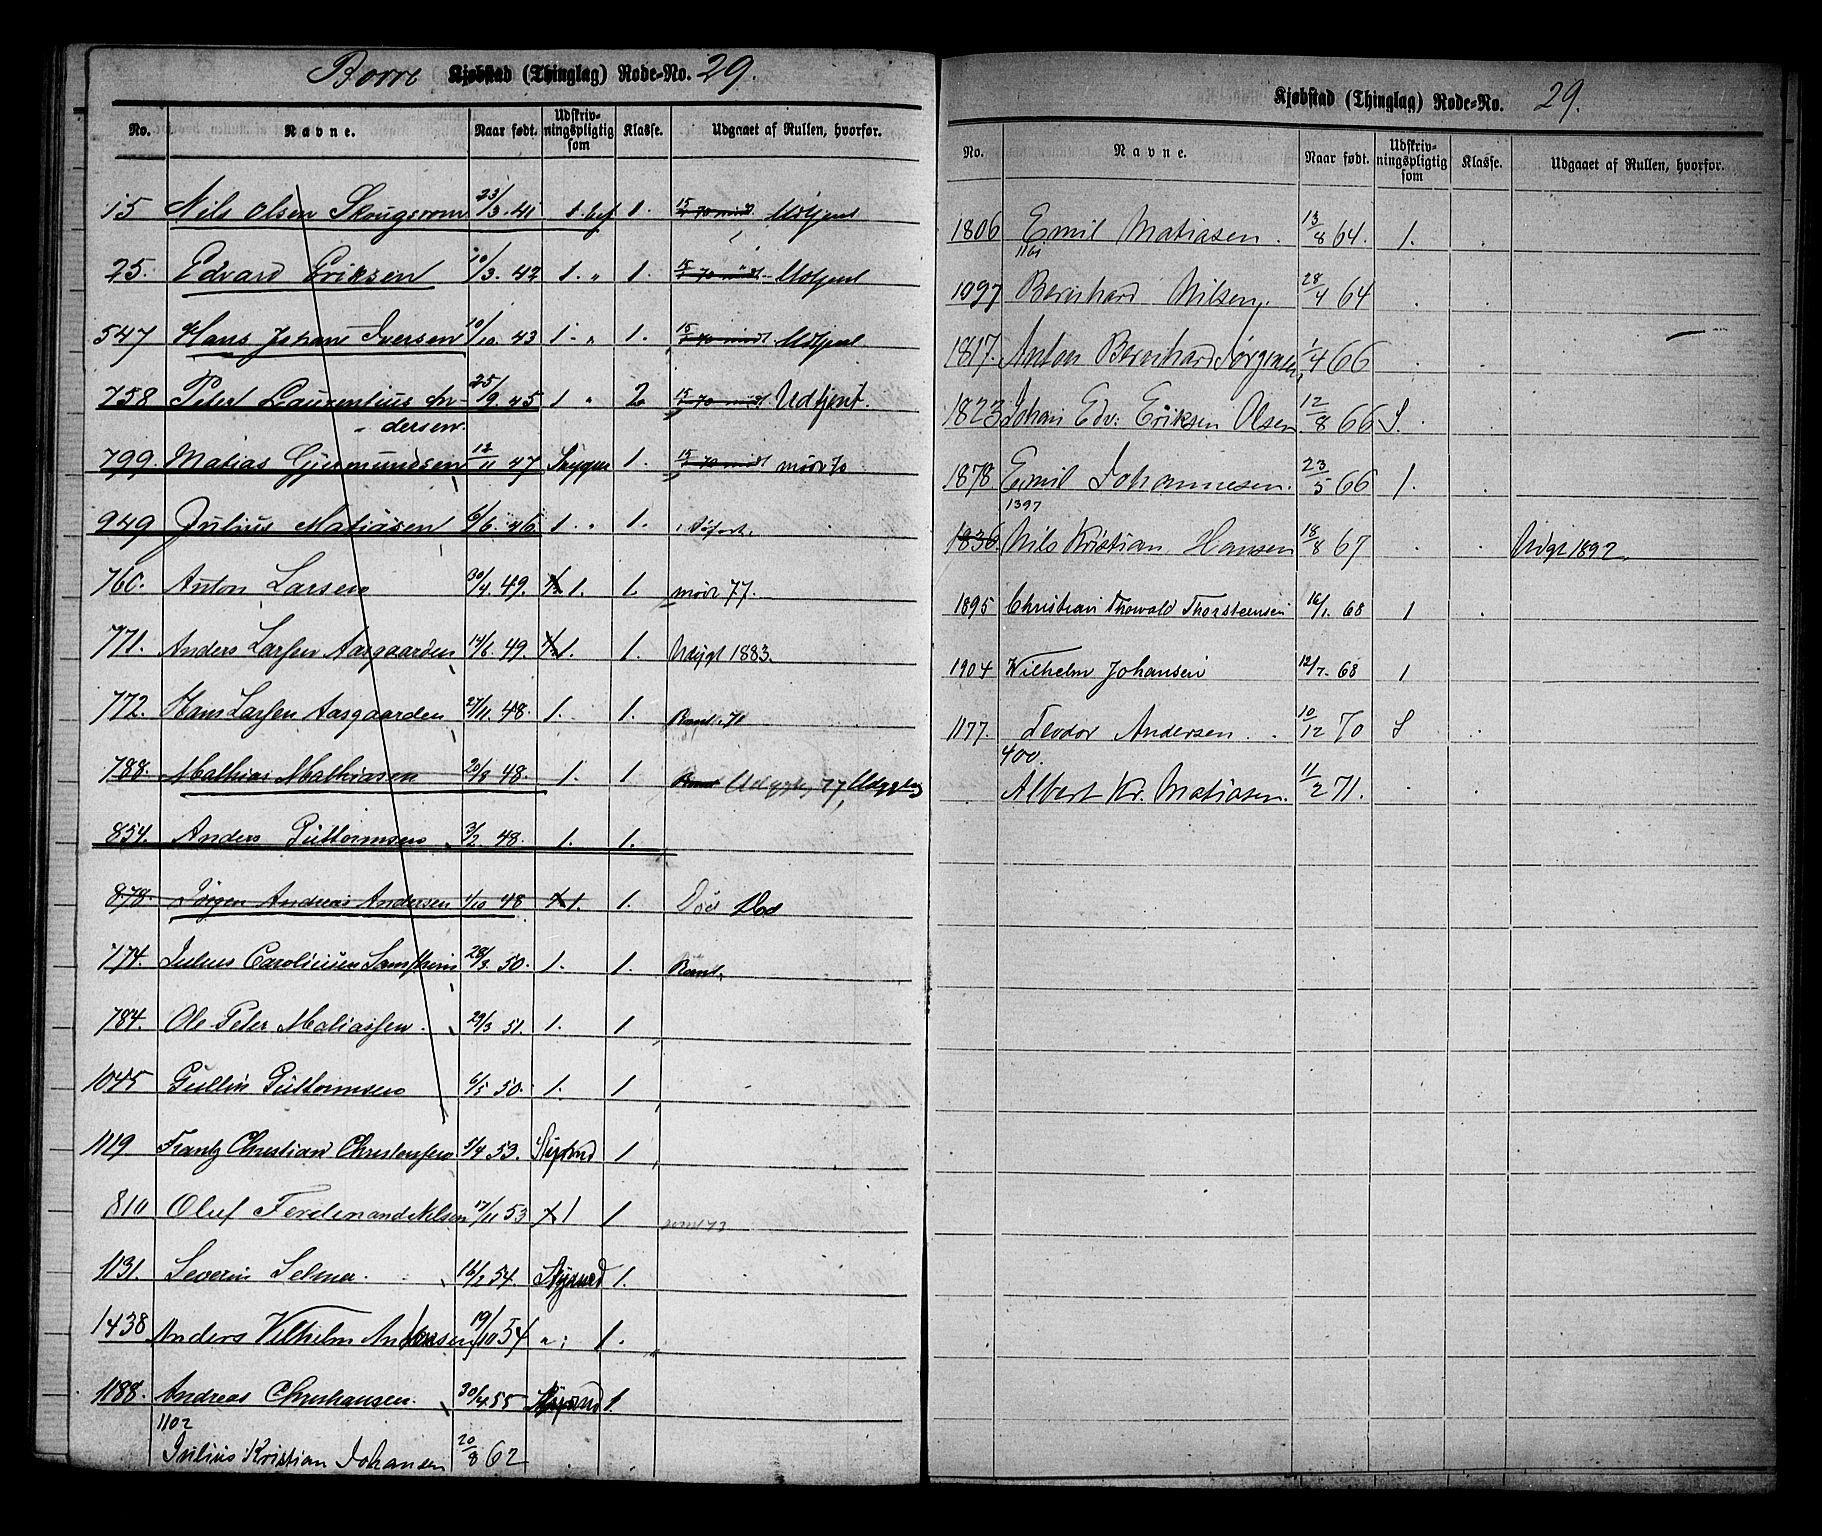 Borre Kjøbstad (Thinglag) Rode-No. 29.
No. Navne. Naar født. Udskrivningspligtig som Klasse. Udgaaet af Rullen, hvorfor.
15 Nils Olsen 23/3. 41 1. bef 1. Udtjent
25. Edvard Eriksen 10/3. 42 1. " 1. Udtjent
547 Hans Johan Iversen 10/10. 43 1. " 1. Udtjent
758 Peter Laurentius An- 25/9. 45 1 " 2 Udtjent.
dersen.
799. Matias Gjermundsen 12/11 47 1.
949 Julius Matiasen 6/6. 46 1. " 1.
760. Anton Larsen 30/4. 49. 1. 1.
771. Anders Larsen Aasgaarden 14/6. 49. 1. 1. Udygt 1883.
772. Hans Larsen Aasgaarden 27/11. 48. 1. 1.
788. Mathias Mathiasen 20/8. 48. 1. 1.
854. Anders Guttormsen 3/2. 48. 1. 1.
878. Jørgen Andreas Andersen 1/10 48 1. 1. Død Død
774. Julius 28/3. 50. 1. 1.
784. Ole Peter Matiassen. 29/3 51. 1. 1
1045 Gullin Guttormsen 6/5 50. 1. 1
1119 Frantz Christian Christensen 5/4 53. 1
810 Oluf Ferdinand Nilsen 17/11 53 1 1
1131. Severin Selmer. 16/2 54. 1.
1438 Anders Vilhelm Andersen 19/10 54 " 1.
1188. Andreas Christiansen. 30/4. 55 1.
1102
Julius Kristian Johansen 20/8 62
Kjøbstad (Thinglag) Rode-No. 29.
No. Navne. Naar født. Udskrivningspligtig som Klasse. Udgaaet af Rullen, hvorfor.
1806 Emil Matiasen. 13/8 64. 1.
1161
1097 Bernhard Nilsen. 28/4 64
1817. Anton Bernhard Jørgensen 1/4 66
1823 Johan Edv. Eriksen Olsen 12/8 66 S.
1878 Emil Johannesen. 23/5 66 1.
1397
1836. Nils Kristian Hansen 18/8 67 Udgt 1892.
1895 Christian Thorvald Thorsteensen 16/1. 68 1
1904 Wilhelm Johansen 12/7. 68 1
1177. Teodor Andersen. 10/12 70 S
400.
Albert Kr. Matiasen. 11/2 71.